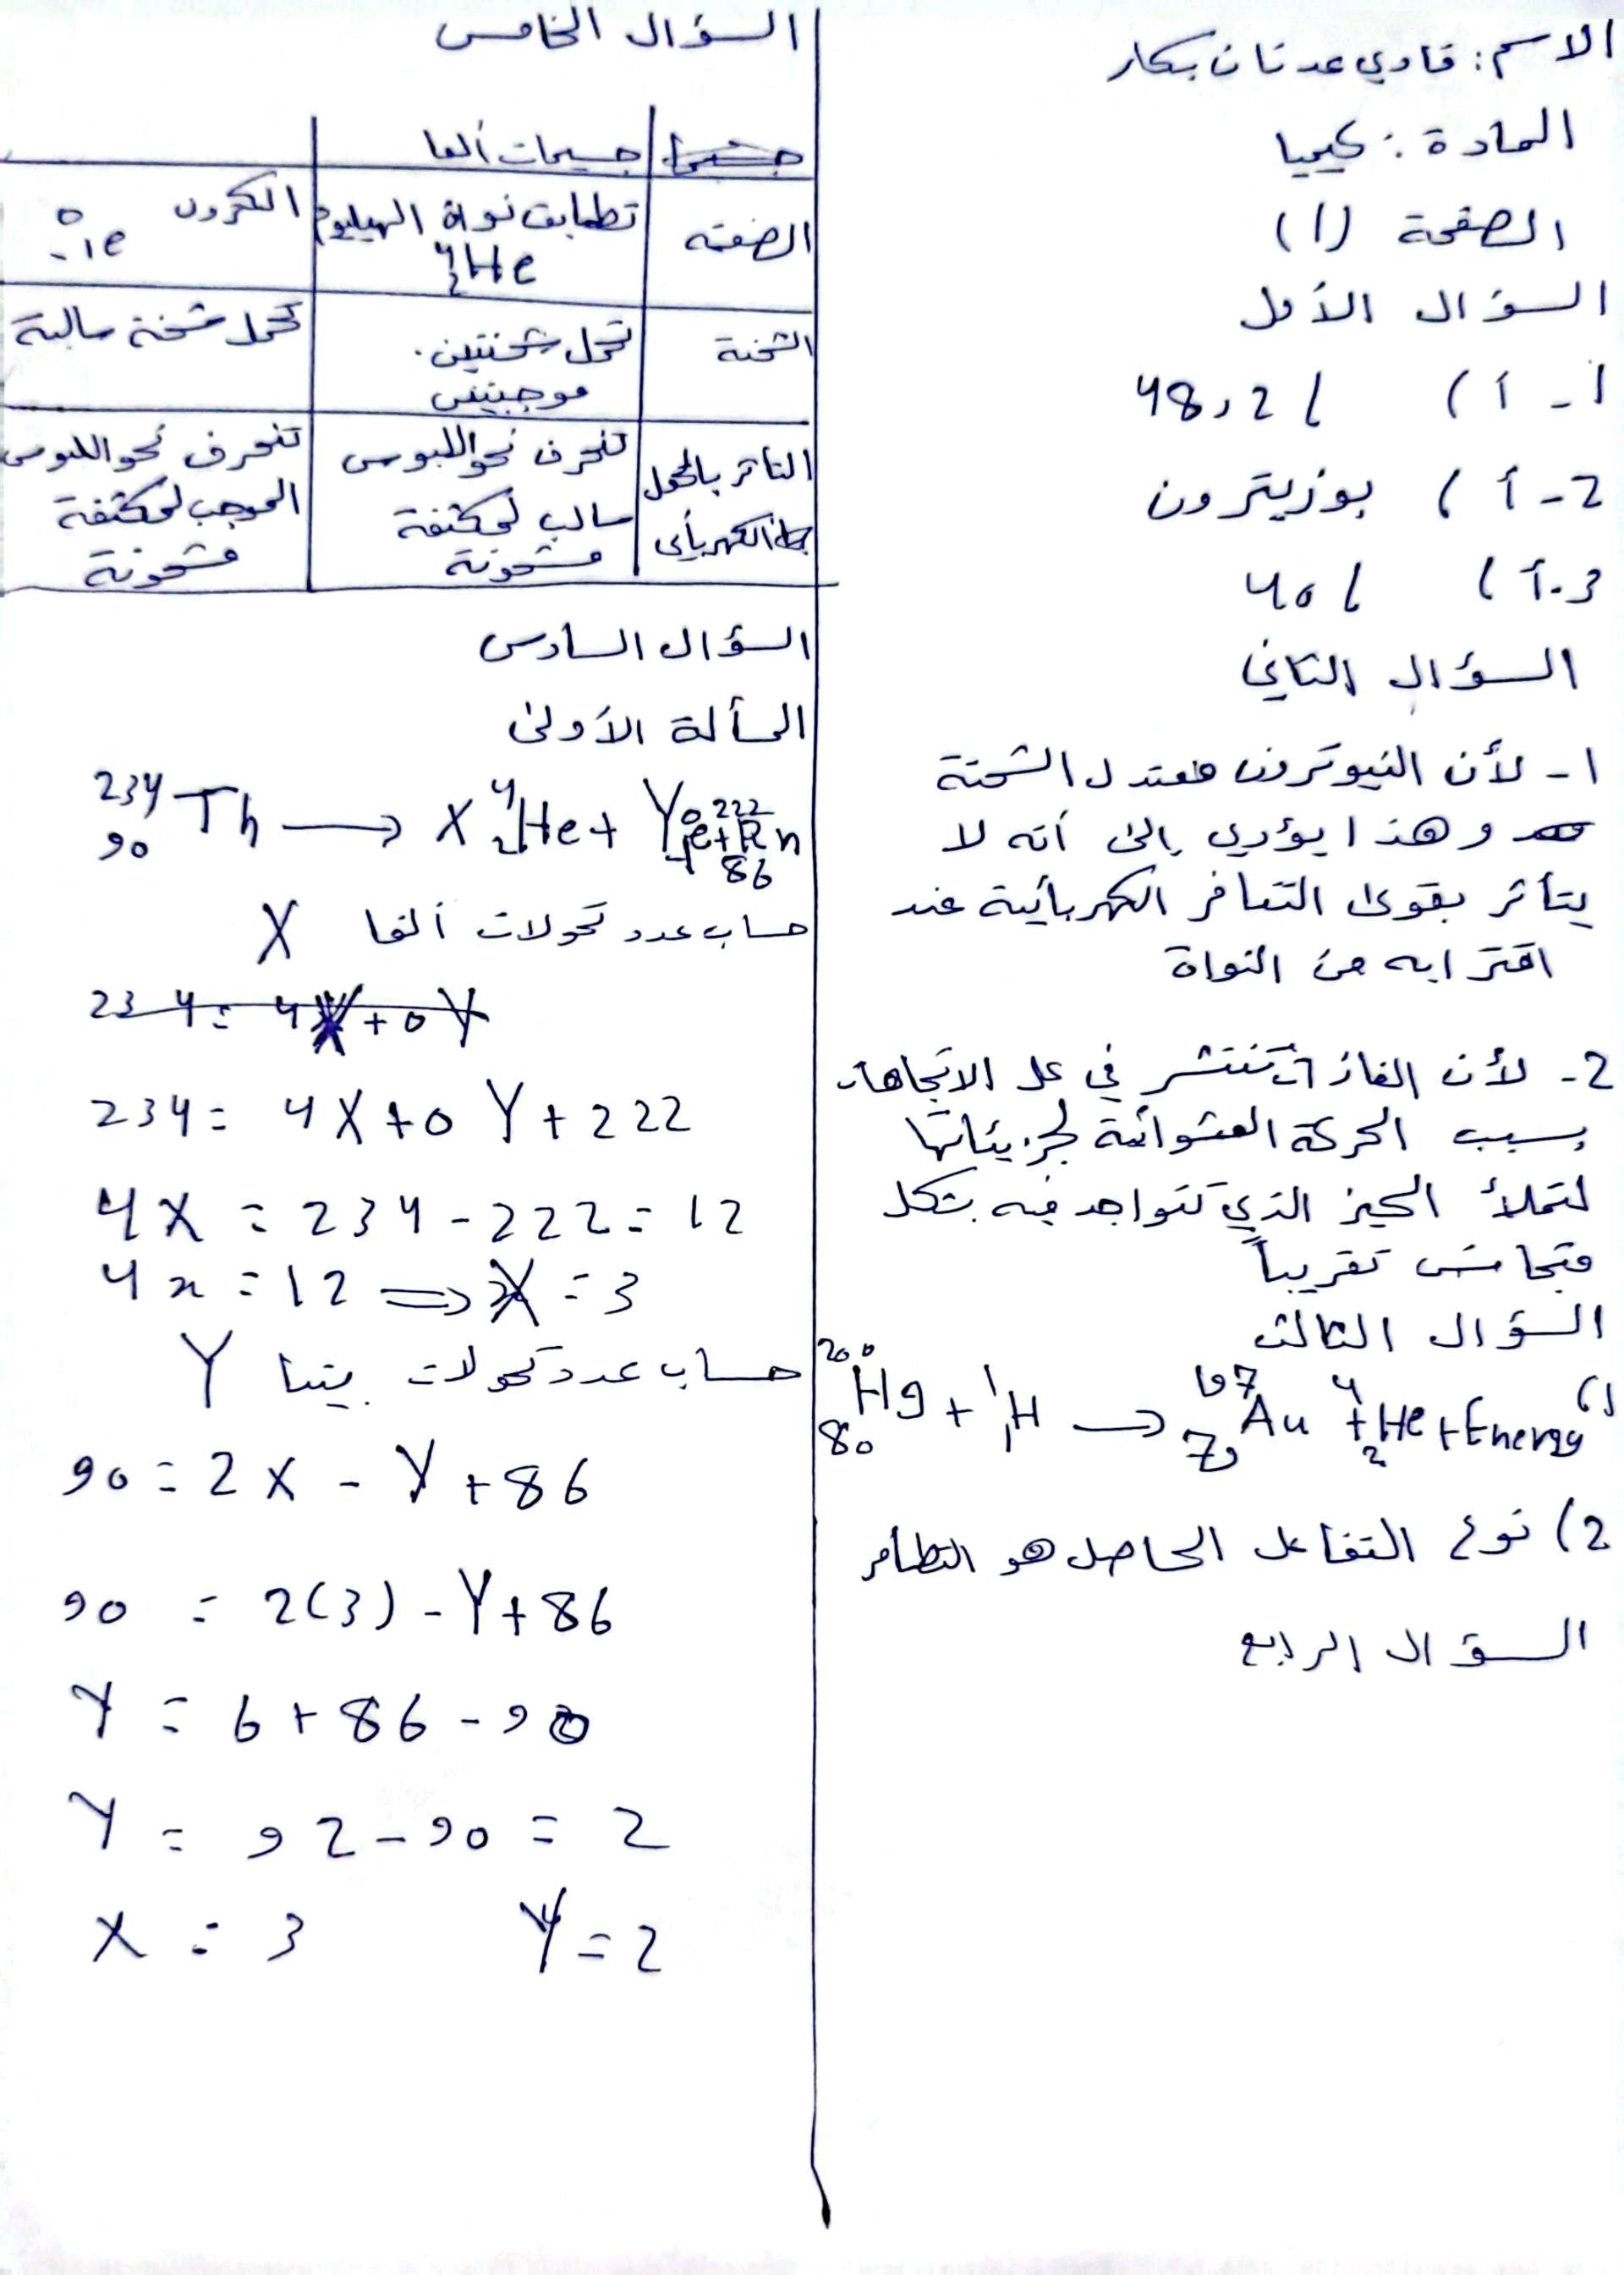 الاسم: فادي عدنان بكار
المادة: كيميا
الصفحة (1)
السؤال الأول
1- أ) 48,2 L
2- أ) بوزيترون
3- أ) 40 L
السؤال الثاني
1- لأن النيوترون معتدل الشحنة
وهذا يؤدي إلى أنه لا
يتأثر بقوى التنافر الكهربائية عند
اقترابه من النواة
2- لأن الغازات تنتشر في كل الاتجاهات
بسبب الحركة العشوائية لجزيئاتها
لتملأ الحيز الذي تتواجد فيه بشكل
متجانس تقريباً
السؤال الثالث
1) ²⁰⁰₈₀Hg + ¹₁H → ¹⁹⁷₇₉Au + ⁴₂He + Energy
2) نوع التفاعل الحاصل هو التطافر
السؤال الرابع
السؤال الخامس
جسيمات ألفا
الصفة | تطابق نواة الهيليوم ⁴₂He | الكترون ⁰₋₁e
الشحنة | تحمل شحنتين موجبتين | تحمل شحنة سالبة
التأثر بالحقل الكهربائي | تنحرف نحو اللبوس سالب لمكثفة مشحونة | تنحرف نحو اللبوس الموجب لمكثفة مشحونة
السؤال السادس
المسألة الأولى
²³⁴₉₀Th → X ⁴₂He + Y ⁰₋₁e + ²²²₈₆Rn
حساب عدد تحولات ألفا X
234 = 4X + 0Y
234 = 4X + 0 Y + 222
4X = 234 - 222 = 12
4x = 12 ⇒ X = 3
حساب عدد تحولات بيتا Y
90 = 2X - Y + 86
90 = 2(3) - Y + 86
Y = 6 + 86 - 90
Y = 92 - 90 = 2
X = 3 Y = 2